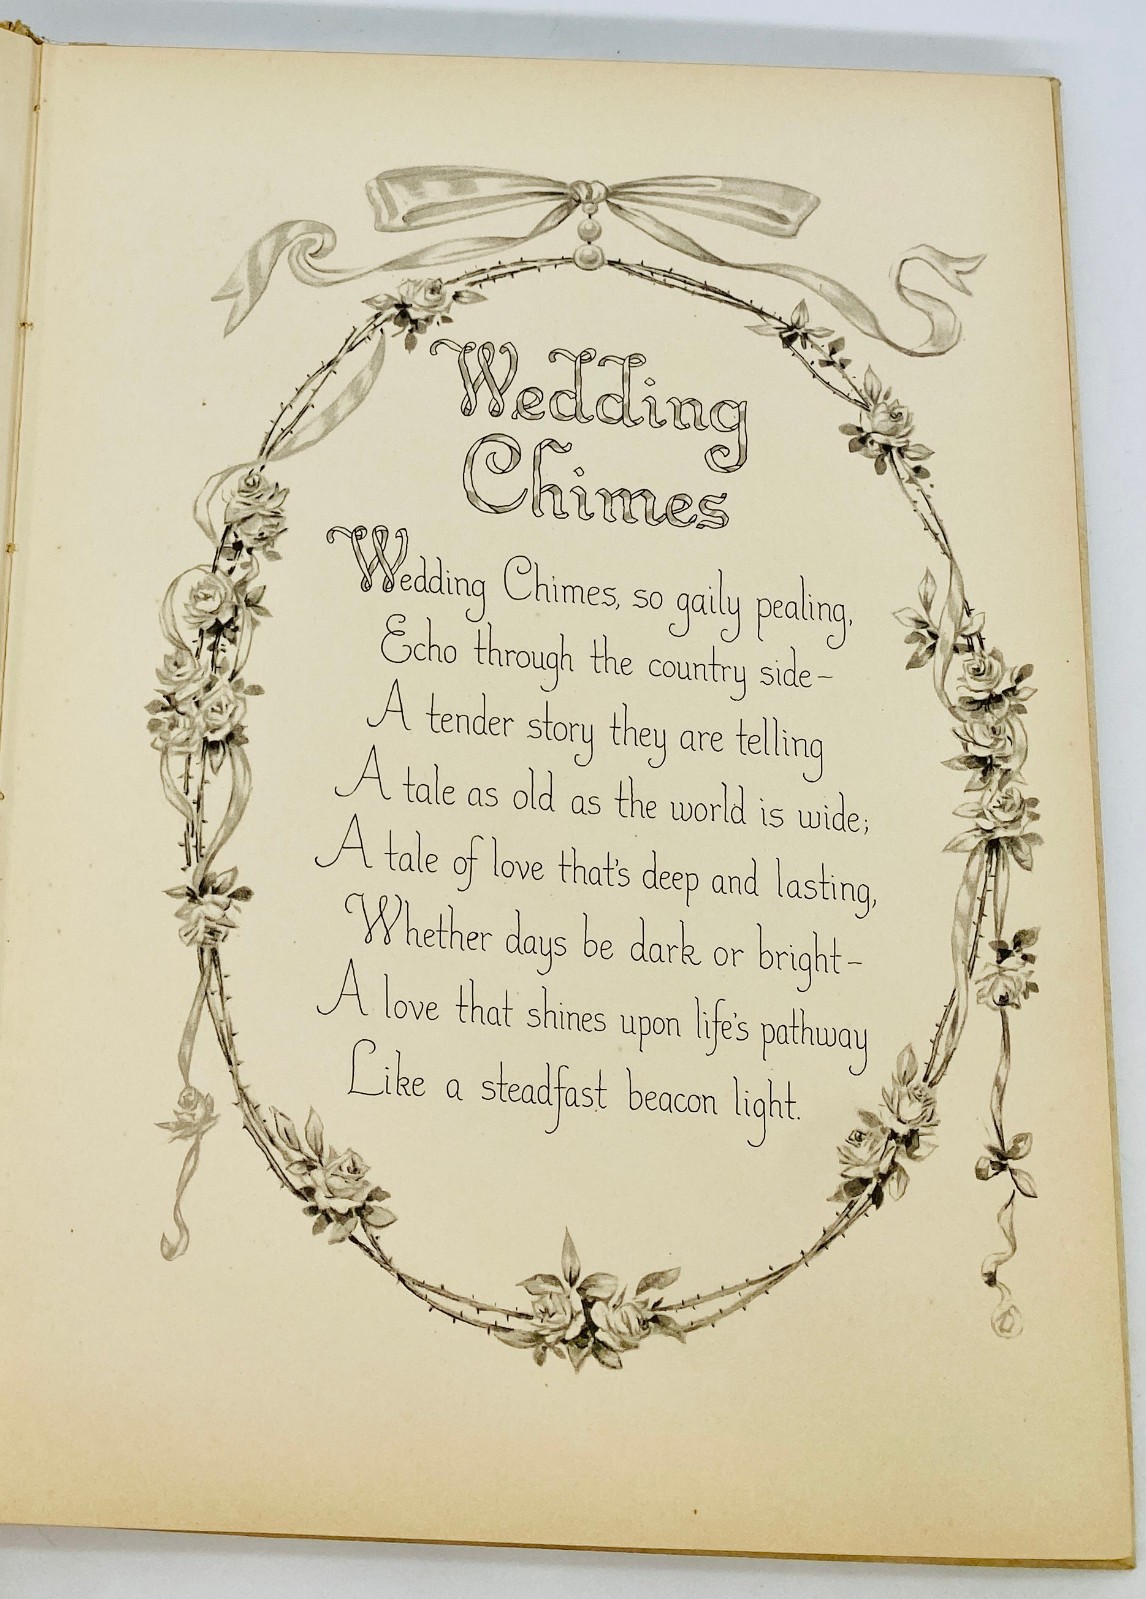 Wedding
Chimes
Wedding Chimes, so gaily pealing,
Echo through the country side-
A tender story they are telling
A tale as old as the world is wide;
A tale of love that's deep and lasting,
Whether days be dark or bright-
A love that shines upon life's pathway
Like a steadfast beacon light.